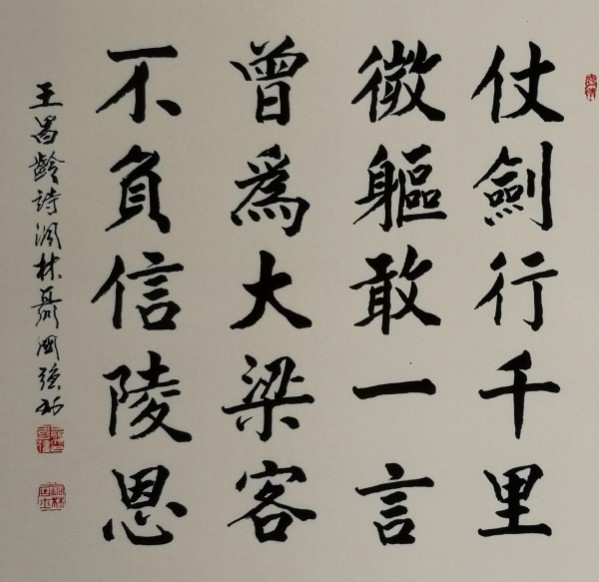 仗劍行千里
微軀敢一言
曾爲大梁客
不負信陵恩
王昌齡詩 林聶國強